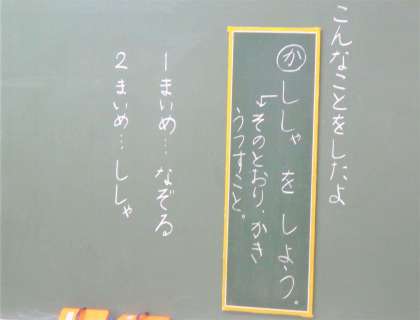 こんなことをしたよ
か ししゃをしよう。
↳そのとおり、かき
うつすこと。
1まいめ…なぞる
2まいめ…ししゃ